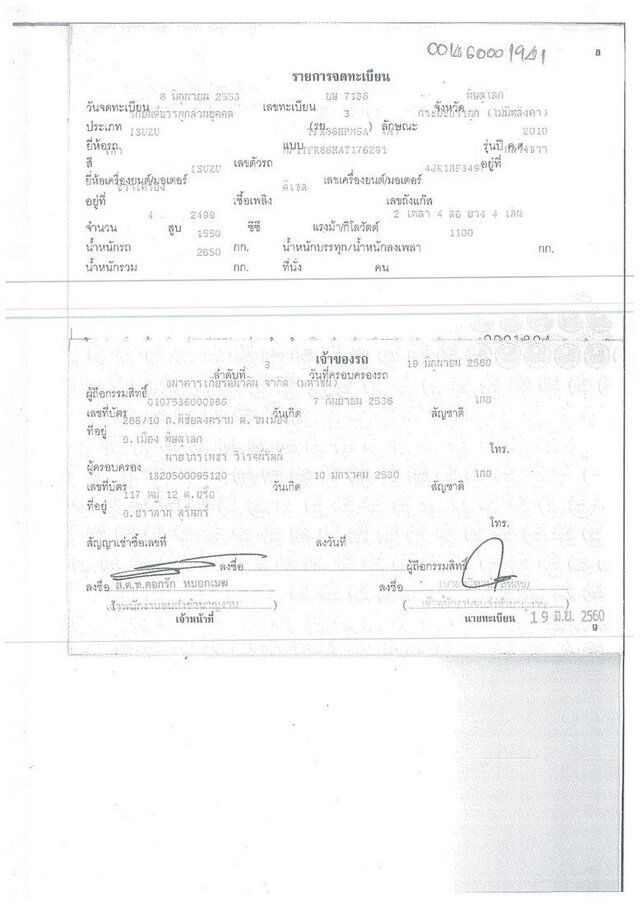 00146001941
8
รายการจดทะเบียน
8 มิถุนายน 2553 ยษ 7136 พิษณุโลก
วันจดทะเบียน เลขทะเบียน จังหวัด
รถยนต์บรรทุกส่วนบุคคล 3 กระบะบรรทุก (ไม่มีหลังคา)
ประเภท (รย. ) ลักษณะ
ISUZU 2010
ยี่ห้อรถ แบบ รุ่นปี ค.ศ.
เทา
สี เลขตัวรถ อยู่ที่
ISUZU
ยี่ห้อเครื่องยนต์/มอเตอร์ เลขเครื่องยนต์/มอเตอร์
ดีเซล
อยู่ที่ เชื้อเพลิง เลขถังแก๊ส
4 2499 2 เพลา 4 ล้อ ยาง 4 เส้น
จำนวน สูบ ซีซี แรงม้า/กิโลวัตต์
1550 1100
น้ำหนักรถ กก. น้ำหนักบรรทุก/น้ำหนักลงเพลา กก.
2650
น้ำหนักรวม กก. ที่นั่ง คน
เจ้าของรถ
3 19 มิถุนายน 2560
ลำดับที่ วันที่ครอบครองรถ
ธนาคารเกียรตินาคิน จำกัด (มหาชน)
ผู้ถือกรรมสิทธิ์
0107536000986 7 กันยายน 2536 ไทย
เลขที่บัตร วันเกิด สัญชาติ
286/10 ถ.พิชัยสงคราม ต.ในเมือง
ที่อยู่
อ.เมือง พิษณุโลก
โทร.
ผู้ครอบครอง
1320500095120 10 มกราคม 2530 ไทย
เลขที่บัตร วันเกิด สัญชาติ
117 หมู่ 12 ต.
ที่อยู่
สุรินทร์
โทร.
สัญญาเช่าซื้อเลขที่ ลงวันที่
ลงชื่อ ผู้ถือกรรมสิทธิ์
ลงชื่อ ส.ต.ท.ดอกรัก หมอกเมฆ ลงชื่อ
(เจ้าพนักงานขนส่งชำนาญงาน) (เจ้าพนักงานขนส่งชำนาญงาน)
เจ้าหน้าที่ นายทะเบียน 19 มิ.ย. 2560
9